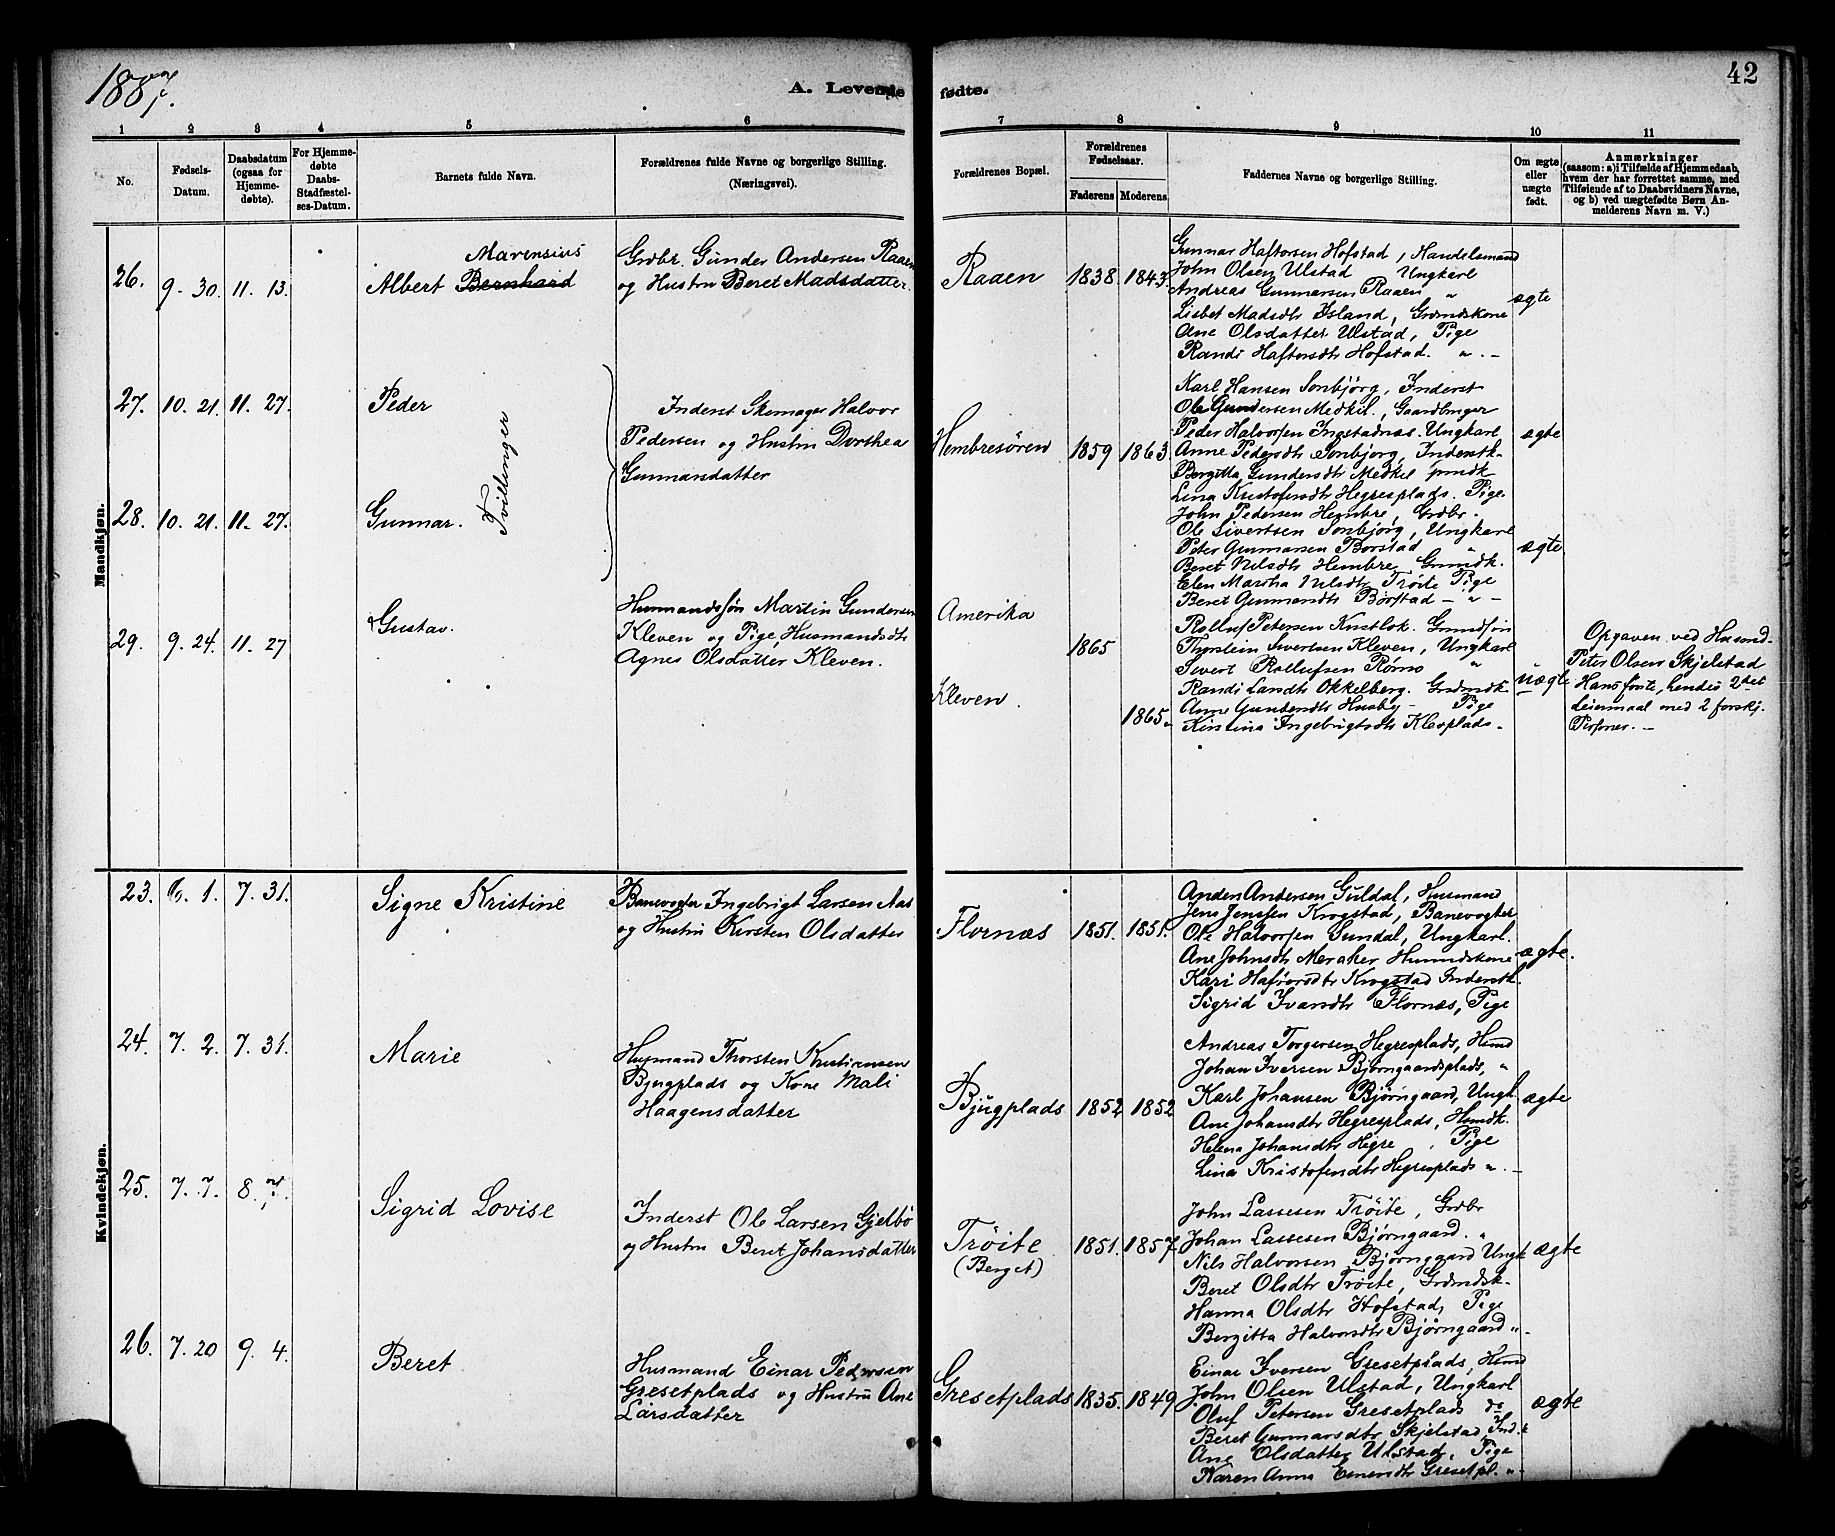 1887.
A. Levende fødte.
42
1 2 3 4 5 6 7 8 9 10 11
No.
Fødsels-
Datum.
Daabsdatum
(ogsaa for
Hjemme-
døbte).
For Hjemme-
døbte
Daabs-
Stadfæstel-
ses-Datum.
Barnets fulde Navn.
Forældrenes fulde Navne og borgerlige Stilling.
(Næringsvei).
Forældrenes Bopæl.
Forældrenes
Fødselsaar.
Faderens Moderens
Faddernes Navne og borgerlige Stilling.
Om ægte
eller
uægte
født.
Anmærkninger
(saasom: a) i Tilfælde af Hjemmedaab,
hvem der har forrettet samme, med
Tilføiende af to Daabsvidners Navne,
og b) ved uægtefødte Børn An-
melderens Navn m. V.)
Mandkjøn.
26. 9. 30. 11. 13.
Marensius
Albert Bernhard
Grdbr. Gunder Andersen Raaen
og Hustru Beret Madsdatter.
Raaen 1838. 1843.
Gunnar Haftorsen Hofstad, Handelsmand
John Olsen Ulstad Ungkarl
Andreas Gunnarsen Raaen "
Lisbet Madsdtr Island, Grdmdskone
Ane Olsdatter Ulstad, Pige
Randi Haftorsdtr Hofstad. " -
ægte
27. 10. 21. 11. 27.
Peder
Tvillinger
Inderst Skomager Halvor
Pedersen og Hustru Dorthea
Gunnarsdatter
Hembresøren 1859 1863
Karl Hansen Sonbjørg, Inderst
Ole Gundersen Medkil, Gaardbruger
Peder Halvorsen Ingstadnæs. Ungkarl
Anne Pedersdtr Sonbjørg, Inderstk.
Bergitta Gundersdtr Medkil
Lina Kristofersdtr Hegresplads. Pige.
ægte
28. 10. 21. 11. 27.
Gunnar.
John Pedersen Hembre, Grdbr.
Ole Sivertsen Sonbjørg, Ungkarl
Peter Gunnarsen Borstad "
Beret Nilsdtr Hembre, Grmdk.
Elen Martha Nilsdtr Trøite Pige
Beret Gunnarsdtr Børstad - " -
ægte
29. 9. 24. 11. 27
Gustav.
Husmandssøn Martin Gundersen
Kleven og Pige, Husmandsdtr
Agnes Olsdatter Kleven.
Amerika
1865
Kleven.
1865.
Rolluf Petersen Grmdsøn
Thorstein Sivertsen Kleven, Ungkarl
Sivert Rollufsen Rømo "
Randi Larsdtr Okkelberg. Grdmdk
Anne Gundersdtr Husby - Pige
Kirstina Ingebrigtsdtr Klevplads. "
uægte
Opgaven ved Husmd-
Peter Olsen Skjelstad
Hans første, hendes 2det
Leiermaal med 2 forskj.
Personer. -
Kvindekjøn.
23. 6. 1. 7. 31.
Signe Kristine
Banevogter Ingebrigt Larsen Aas
og Hustru Kirsten Olsdatter
Flornæs 1851. 1851.
Anden Andersen Guldal, Husmand
Jens Jenssen Krogstad, Banevogter
Ole Halvorsen Sundal, Ungkarl.
Ane Johnsdtr Meraker Husmdskone
Kari Hafrorsdtr Krogstad Inderstk.
Sigrid Ivarsdtr Flornæs, Pige
ægte.
24. 7. 2. 7. 31.
Marie
Husmand Thorsten Kristiansen
Bjugplads og Kone Mali
Haagensdatter
Bjugplads 1852 1852
Andreas Torgersen Hegresplads, Husmd
Johan Iversen Bjørngaardsplads, "
Karl Johansen Bjørngaard, Ungk.
Ane Johansdtr Hegresplads, Husmdk.
Helena Johansdtr Hegre, Pige
Lina Kristofersdtr Hegresplads " -
ægte
25. 7. 7. 8. 7.
Sigrid Lovise
Inderst Ole Larsen Gjelbø
og Hustru Beret Johansdatter
Trøite
(Berget)
1851. 1857
John Lassesen Trøite, Grdbr
Johan Lassesen Bjørngaard. "
Nils Halvorsen Bjørngaard Ungk
Beret Olsdtr Trøite, Grdmdsk.
Hanna Olsdtr Hofstad, Pige
Bergitta Halvorsdtr Bjørngaard ".
ægte
26. 7. 20 9. 4.
Beret
Husmand Einar Pedersen
Gresetplads og Hustru Ane
Larsdatter
Gresetplads 1835. 1849
Einar Iversen Gresetplads, Husmd
John Olsen Ulstad, Ungkarl
Oluf Petersen Gresetplads do
Beret Gunnarsdtr Skjelstad, Indk
Ane Olsdatter Ulstad, Pige
Karen Anna Einersdtr Gresetpl. "
ægte